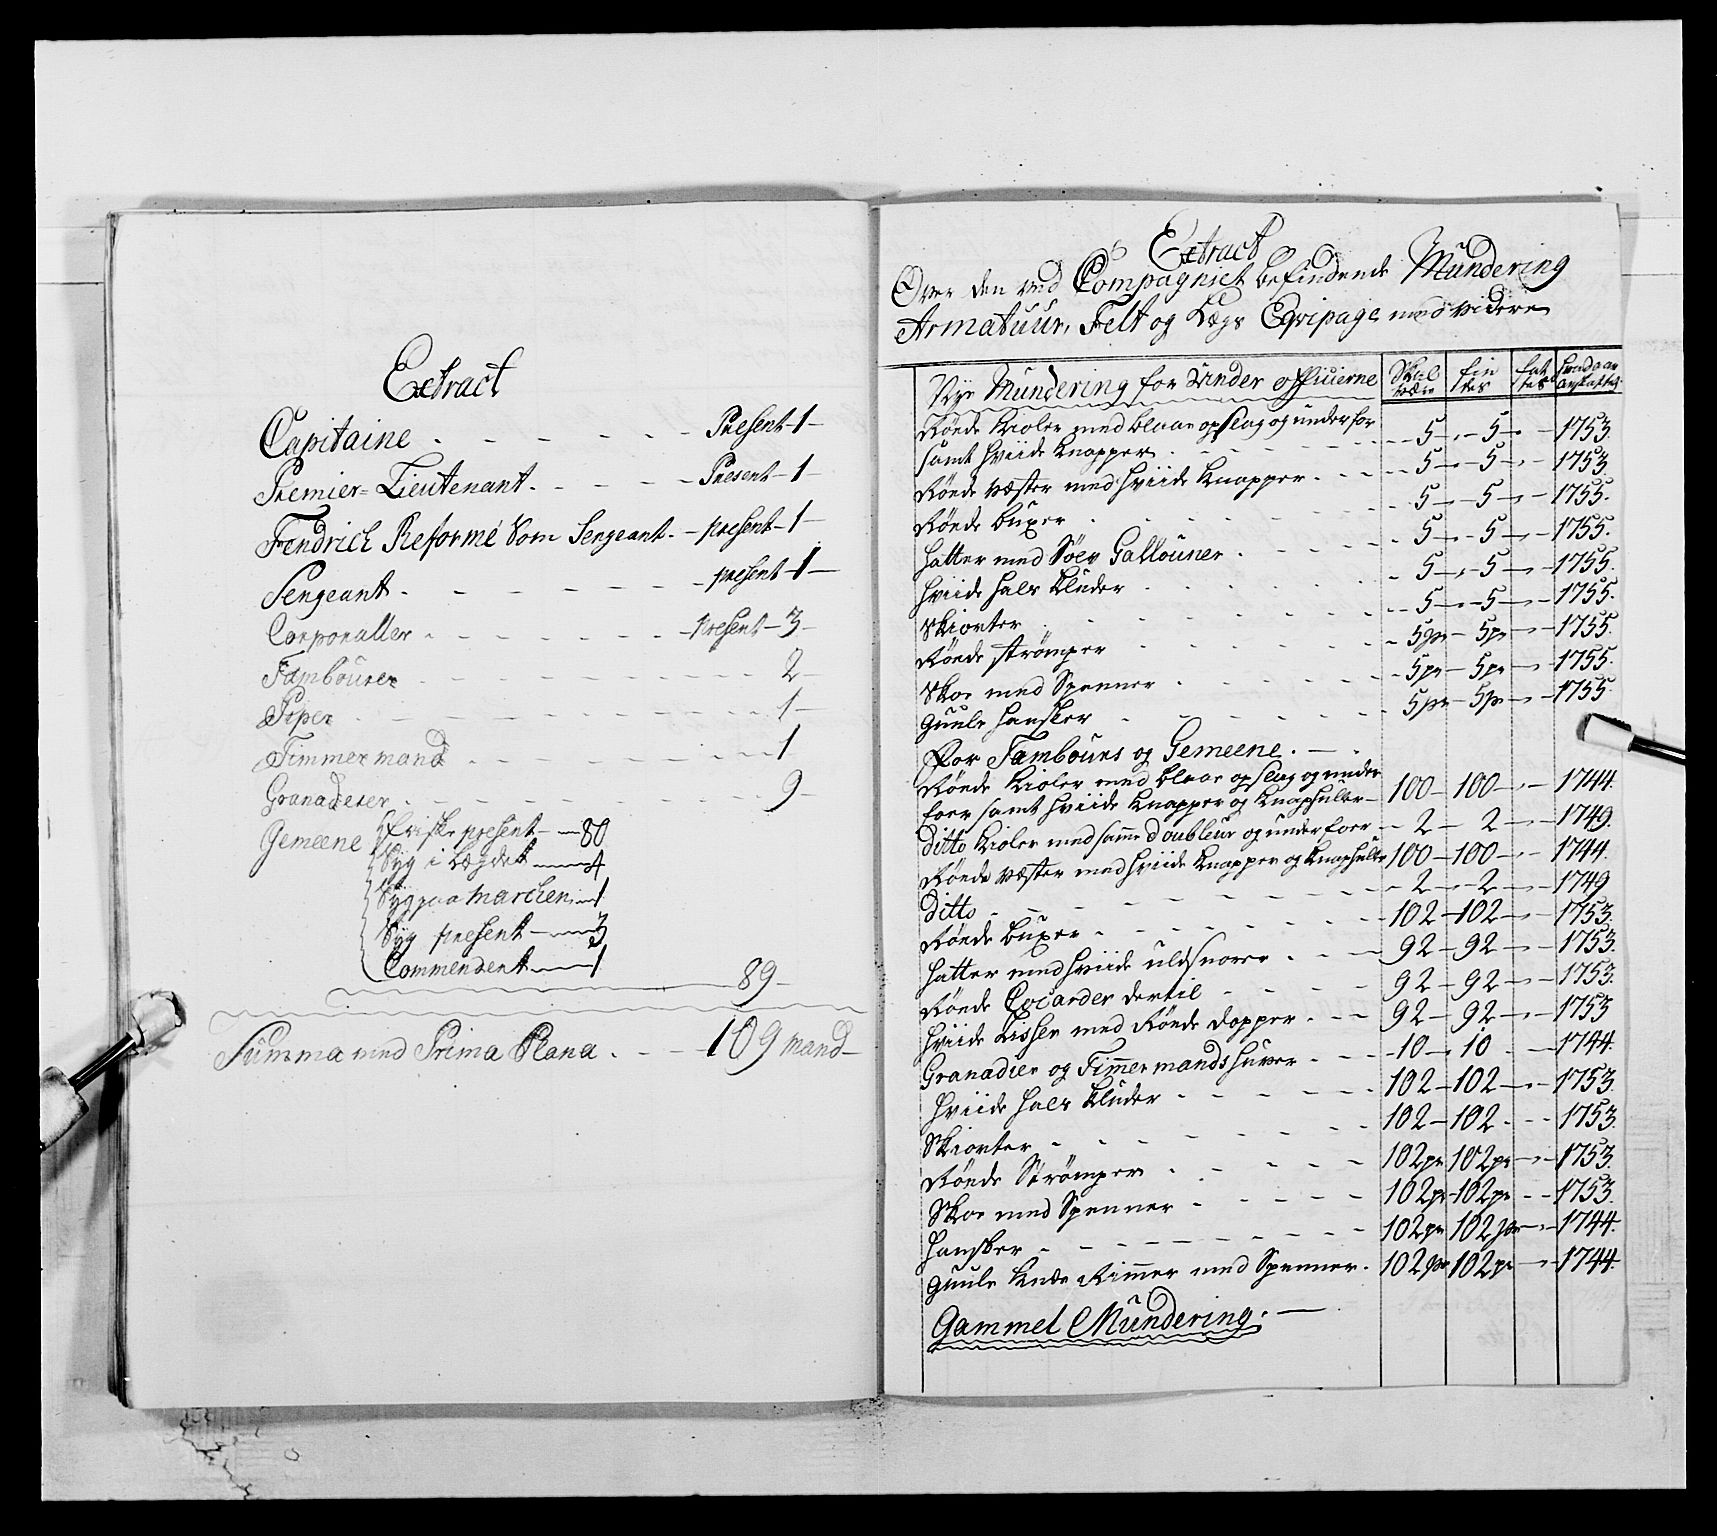 Extract
Capitaine - - - - - - Present - 1 -
Premier = Lieutenant - - - - Present - 1
Fendrich Reformé Som Sergeant - present - 1 -
Sergeant - - - - - - present - 1 -
Corporaller - - - - - - present - 3 -
Tambourer - - - - - - 2 -
Piper - - - - - - 1 -
Timmermand - - - - - - 1
Granaderer - - - - - - 9 -
Gemeene friske present - 80
Syg i Lægdet - 4
Syg paa Marchen - 1
Syg present - 3
Commendent - 1
89 -
Summa med Prima Plana - - - 109 mand -
Extract
Over den ved Compagniet befindende Mundering
Armatuur, Felt og Lægs Eqvipage med videre
Nye Mundering for Under officierne Skal være fin des fat tes hvad aar anskaffed
Røede Kioler med blaae opslag og underfor
samt hviide Knapper - - - 5 - 5 - 1753
Røede Væster med hviide Knapper - - - 5 - 5 - 1753
Røede buxer - - - 5 - 5 - 1755
hatter med Sølv Gallouner - - - 5 - 5 - 1755
hviide hals Kluder - - - 5 - 5 - 1755
Skiorter - - - 5 - 5 - 1755
Røede strømper - - - 5pr - 5pr - 1755
Skoe med Spenner - - - 5pr - 5pr - 1755
Guule hansker - - - 5pr - 5pr - 1755
For Tambours og Gemeene. -
Røede Kioler med blaae opslag og under
foer samt hviide Knapper og Knaphuller - 100 - 100 - 1744
ditto Kioler med samme doubleur og underfoer - 2 - 2 - 1749
Røede Væster med hviide Knapper og Knaphuller 100 - 100 - 1744
ditto - - - 2 - 2 - 1749
Røede buxer - - - 102 - 102 - 1753
hatter med hviide uldsnorer - - - 92 - 92 - 1753
Røede Cocarder dertil - - - 92 - 92 - 1753
hviide Lisser med Røede dopper - - - 92 - 92 - 1753
Granadier og Timmermands huver - - - 10 - 10 - 1744
hviide hals Kluder - - - 102 - 102 - 1753
Skiorter - - - 102 - 102 - 1753
Røede Strømper - - - 102pr 102pr - 1753
Skoe med Spenner - - - 102pr - 102pr - 1753
hansker - - - 102pr 102pr - 1744
Guule Knæe Rimmer med Spenner - 102pr 102pr - 1744
Gammel Mundering. -